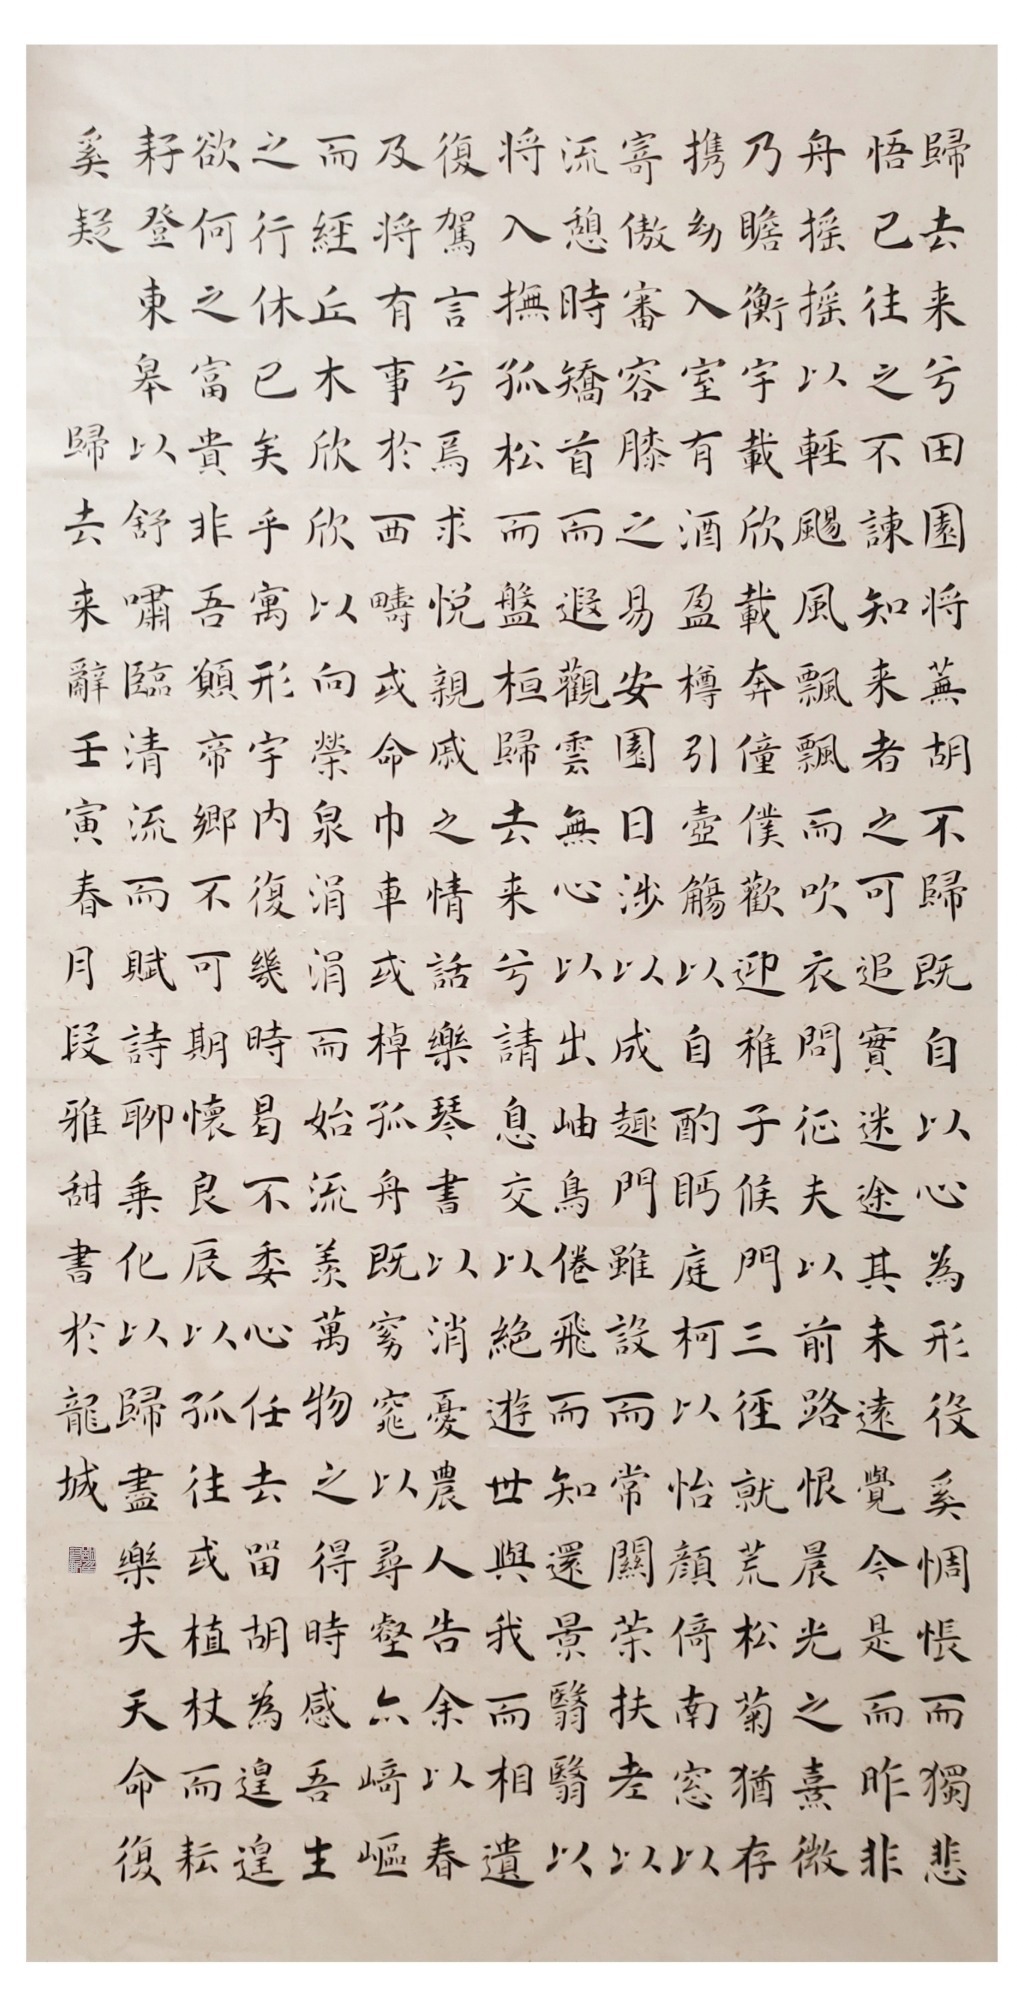 歸去来兮田園将蕪胡不歸既自以心為形役奚惆悵而獨悲
悟已往之不諫知来者之可追實迷途其未遠覺今是而昨非
舟摇摇以輕颺風飄飄而吹衣問征夫以前路恨晨光之熹微
乃瞻衡宇載欣載奔僮僕歡迎稚子候門三徑就荒松菊猶存
携幼入室有酒盈樽引壺觴以自酌眄庭柯以怡顔倚南窓以
寄傲審容膝之易安園日涉以成趣門雖設而常關荣扶老以
流憩時矯首而遐觀雲無心以出岫鳥倦飛而知還景翳翳以
将入撫孤松而盤桓歸去来兮請息交以絶遊世與我而相遺
復駕言兮焉求悦親戚之情話樂琴書以消憂農人告余以春
及将有事於西疇或命巾車或棹孤舟既窈窕以尋壑亦崎嶇
而經丘木欣欣以向榮泉涓涓而始流羨萬物之得時感吾生
之行休已矣乎寓形宇内復幾時曷不委心任去留胡為遑遑
欲何之富貴非吾願帝鄉不可期懷良辰以孤往或植杖而耘
耔登東皋以舒嘯臨清流而賦詩聊乗化以歸盡樂夫天命復
奚疑 歸去来辭壬寅春月段雅甜書於龍城